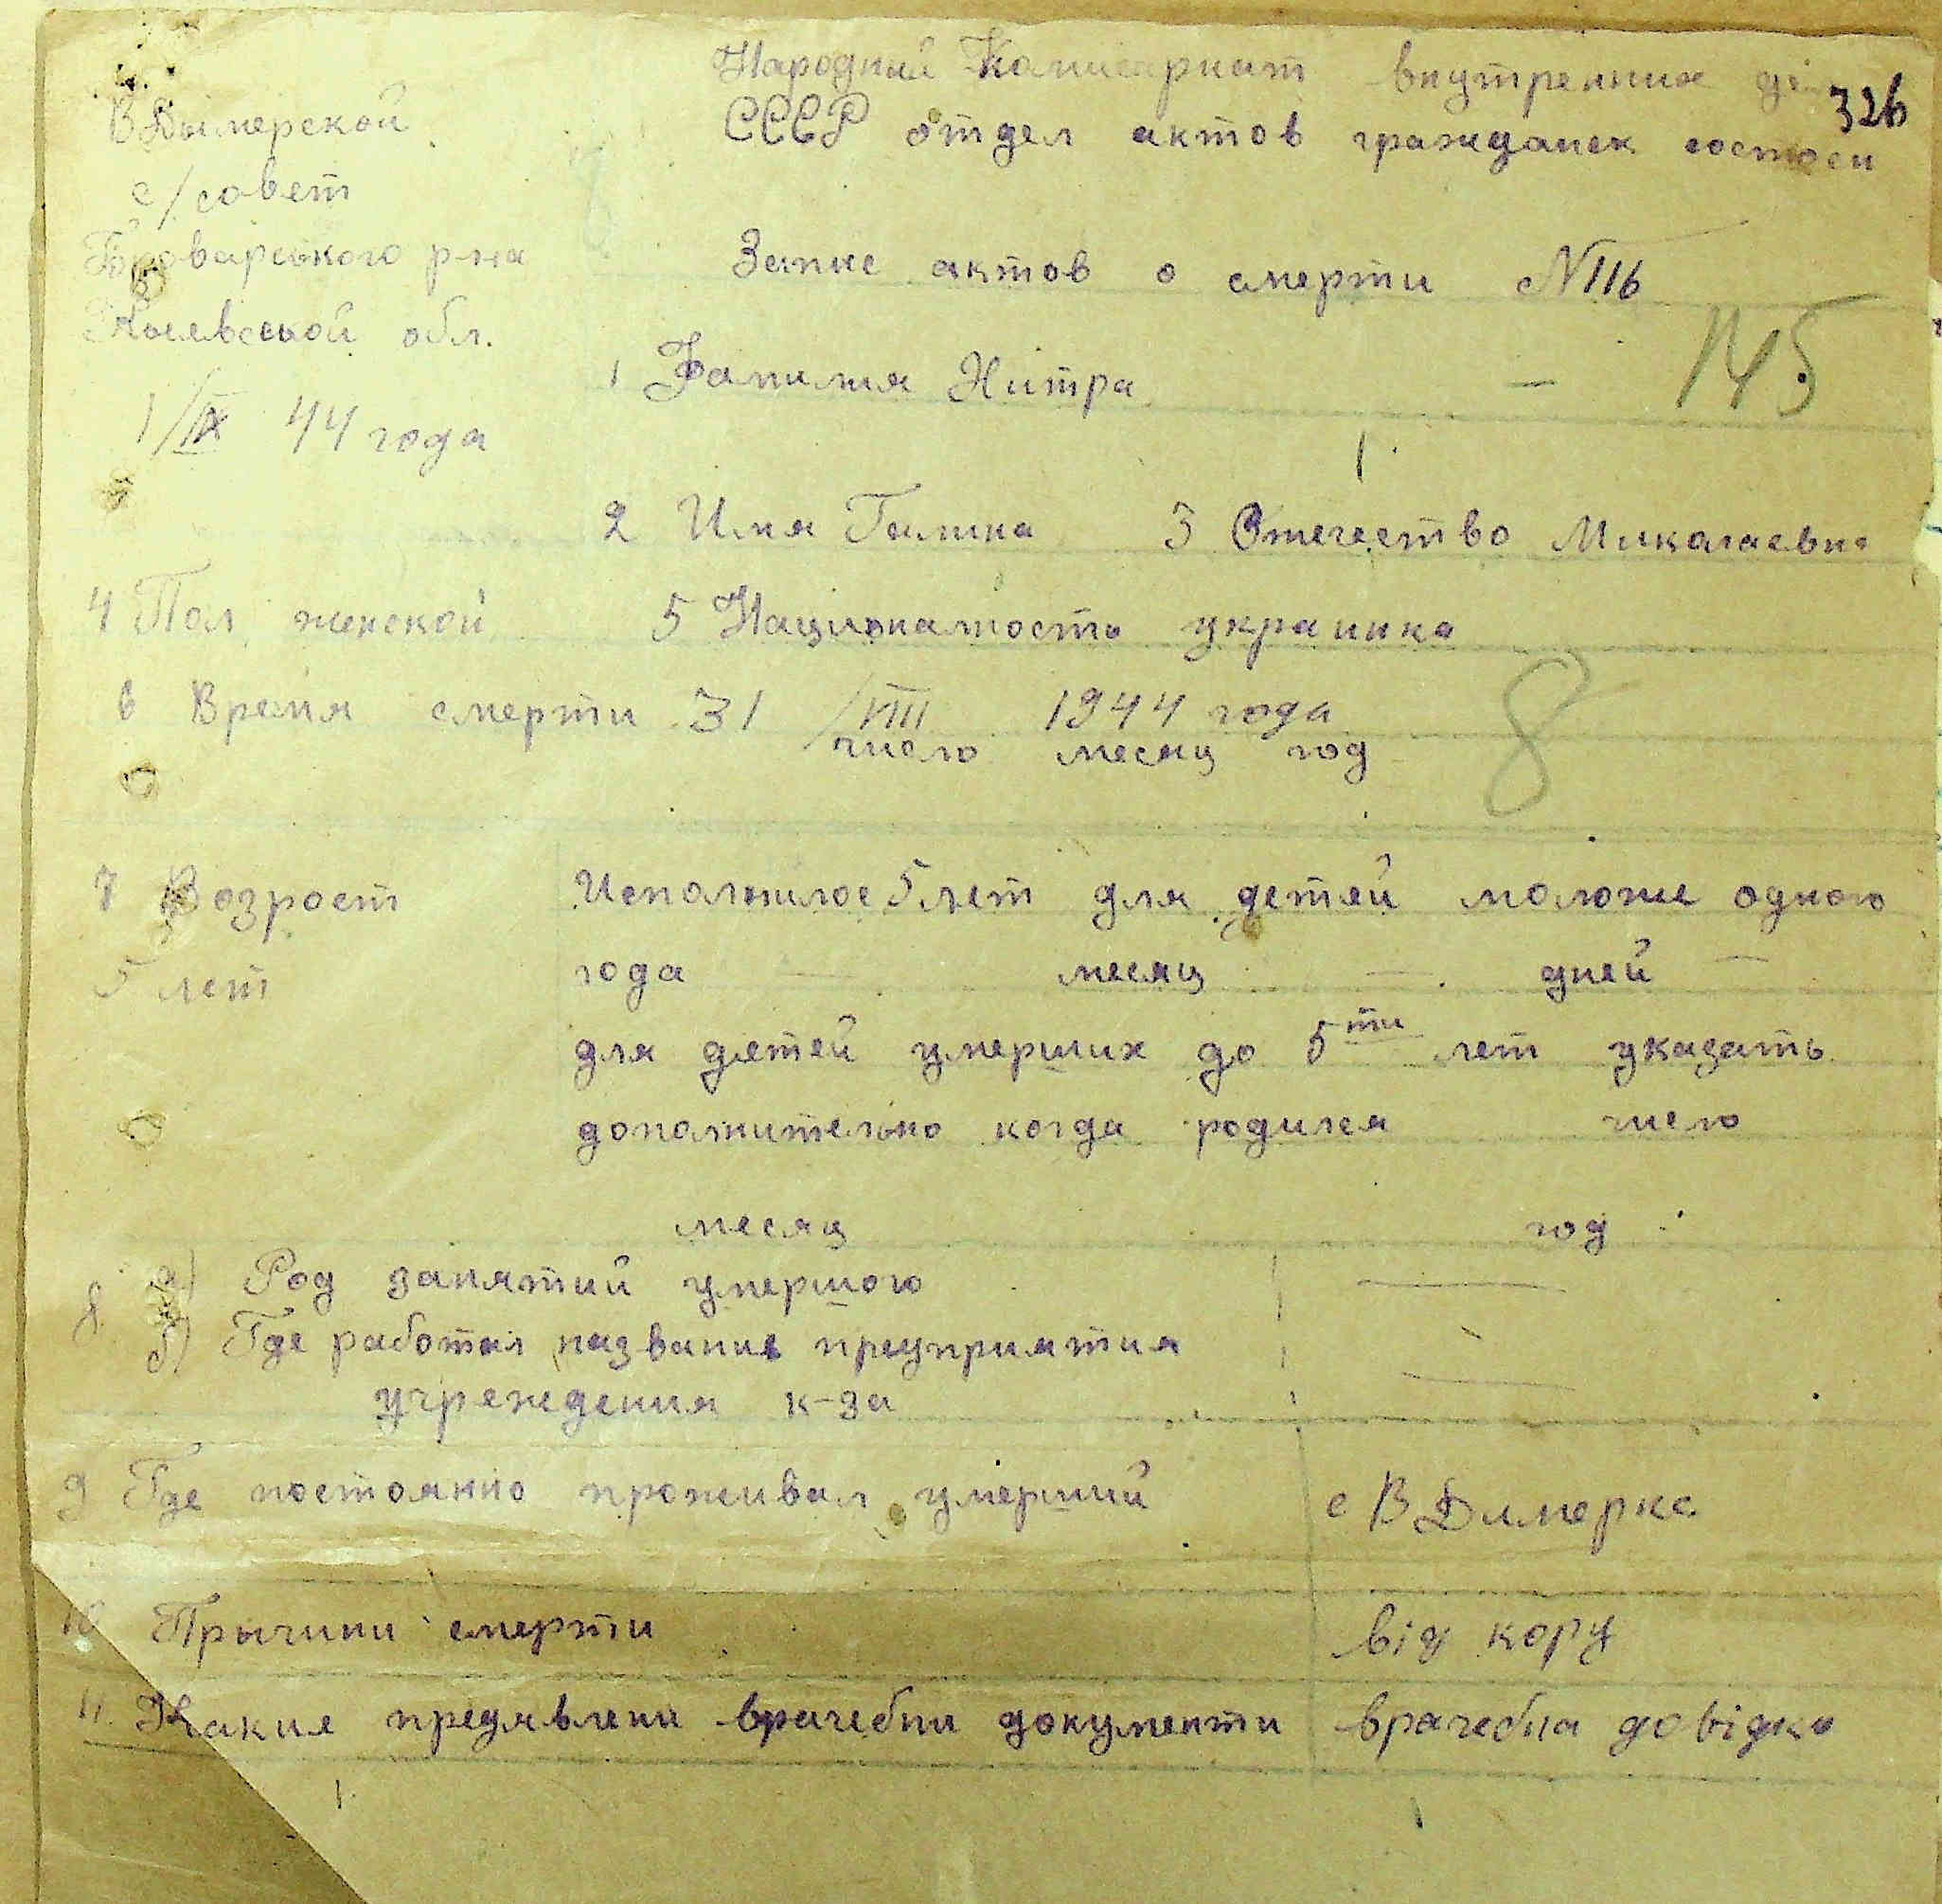 326
Народний Комисариат внутренних
СССР отдел актов гражданск состоен
В Дымерской
с/совет
Броварського р-на
Кыевськой обл.
1/IX 44 года
Запис актов о смерти №116
145
1 Фамилия Нитра —
2 Имя Галина 3 Отечество Миколаевна
4 Пол женской 5 Националность украинка
6 Время смерти 31/VIII 1944 года
число месяц год
8
7 Возрост Исполнилос 5 лет для детей моложе одного
5 лет года — месяц — дней —
для детей умерших до 5ти лет указать
дополнительно когда родился число
месяц год
8 а) Род занятий умершого —
б) Где работал название предприятия —
учреждения к-за —
9 Где постоянно проживал умерший с В Димерка
10 Прычини смерти від кору
11. Какие предявлени врачебни документи врачебна довідка